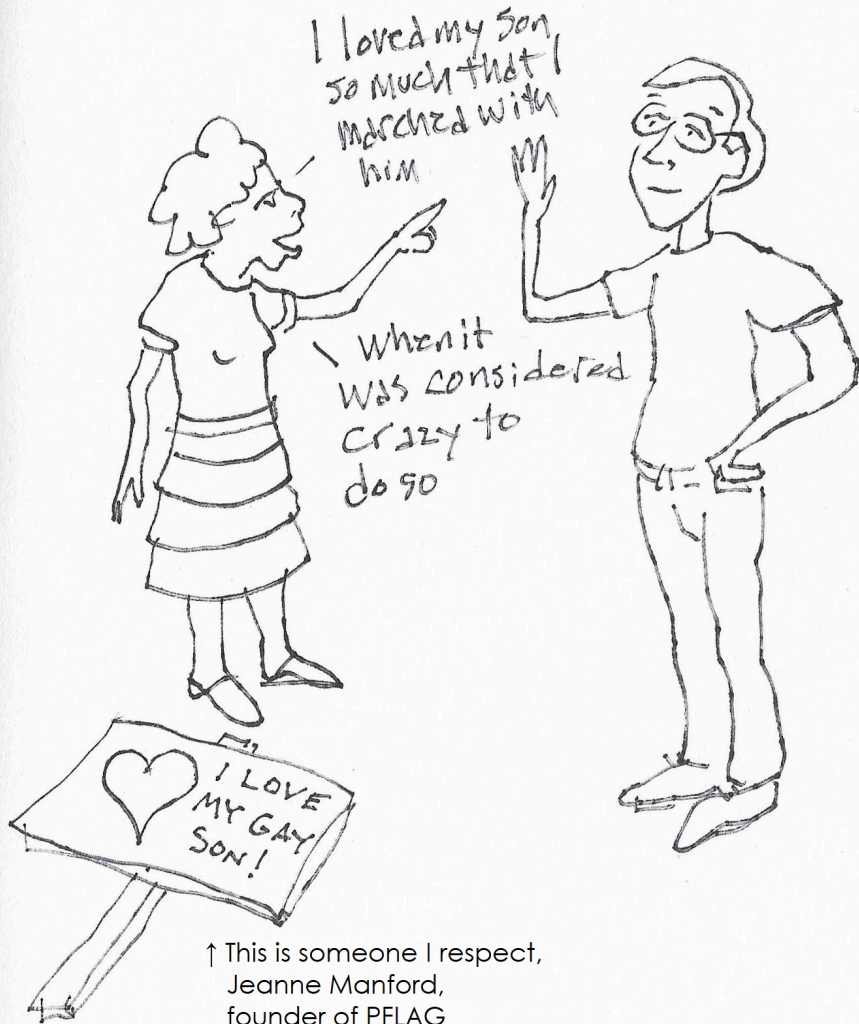 I loved my son
so much that I
marched with
him
When it
was considered
crazy to
do so
I LOVE
MY GAY
SON!
↑ This is someone I respect,
Jeanne Manford,
founder of PFLAG